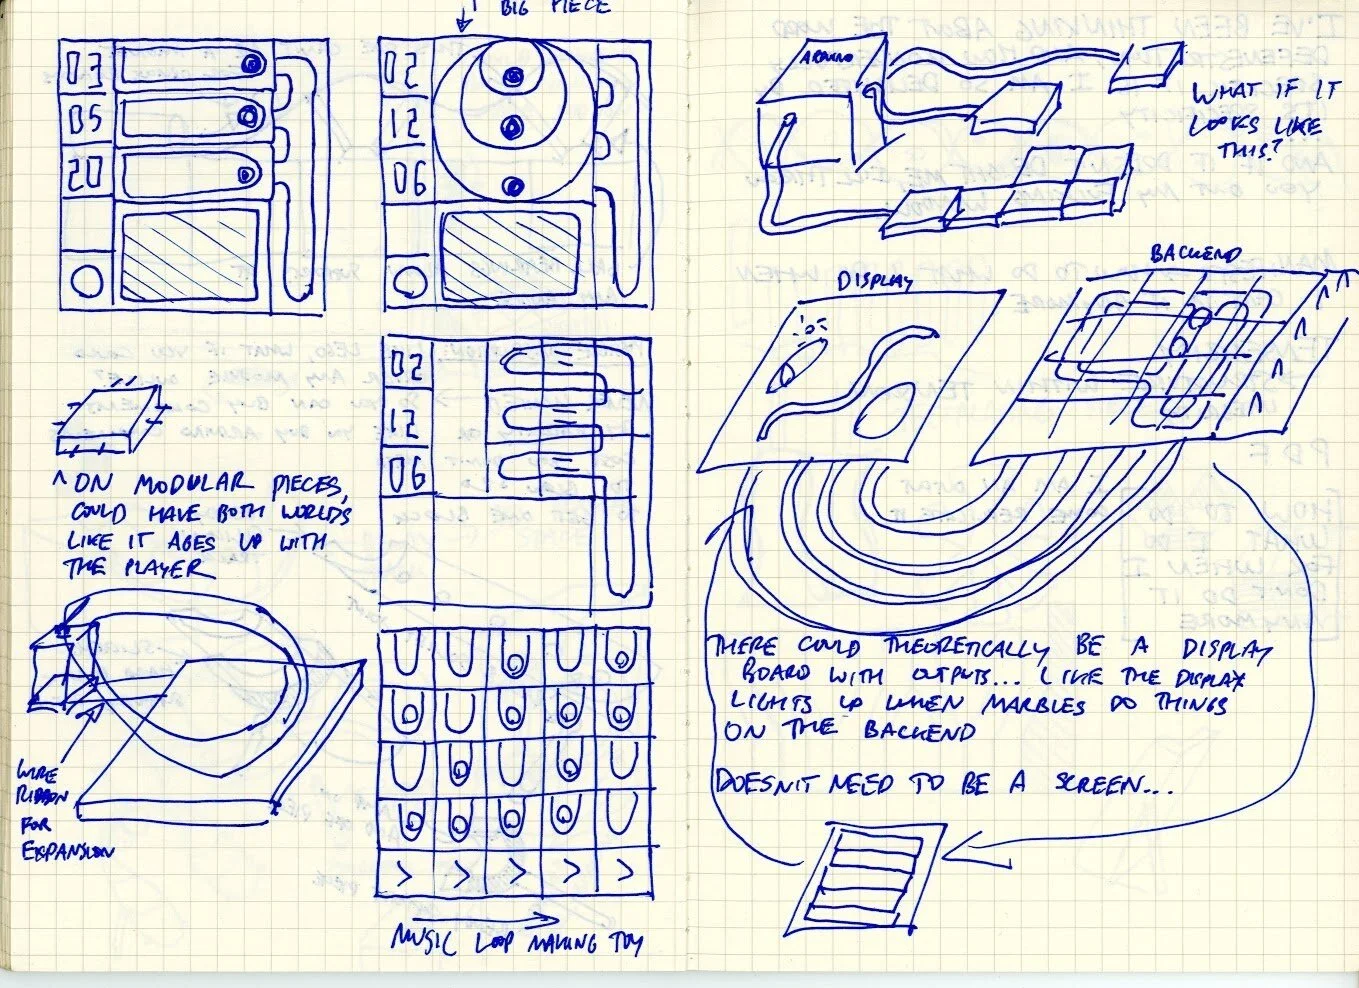 BIG PIECE
03
05
20
02
12
06
^ ON MODULAR PIECES,
COULD HAVE BOTH WORLDS
LIKE IT AGES UP WITH
THE PLAYER
02
12
06
WIRE
RIBBON
FOR
EXPANSION
> > > > >
MUSIC LOOP MAKING TOY
ARDUINO
WHAT IF IT
LOOKS LIKE
THIS?
DISPLAY
BACKEND
THERE COULD THEORETICALLY BE A DISPLAY
BOARD WITH OUTPUTS... LIKE THE DISPLAY
LIGHTS UP WHEN MARBLES DO THINGS
ON THE BACKEND
DOESN'T NEED TO BE A SCREEN...